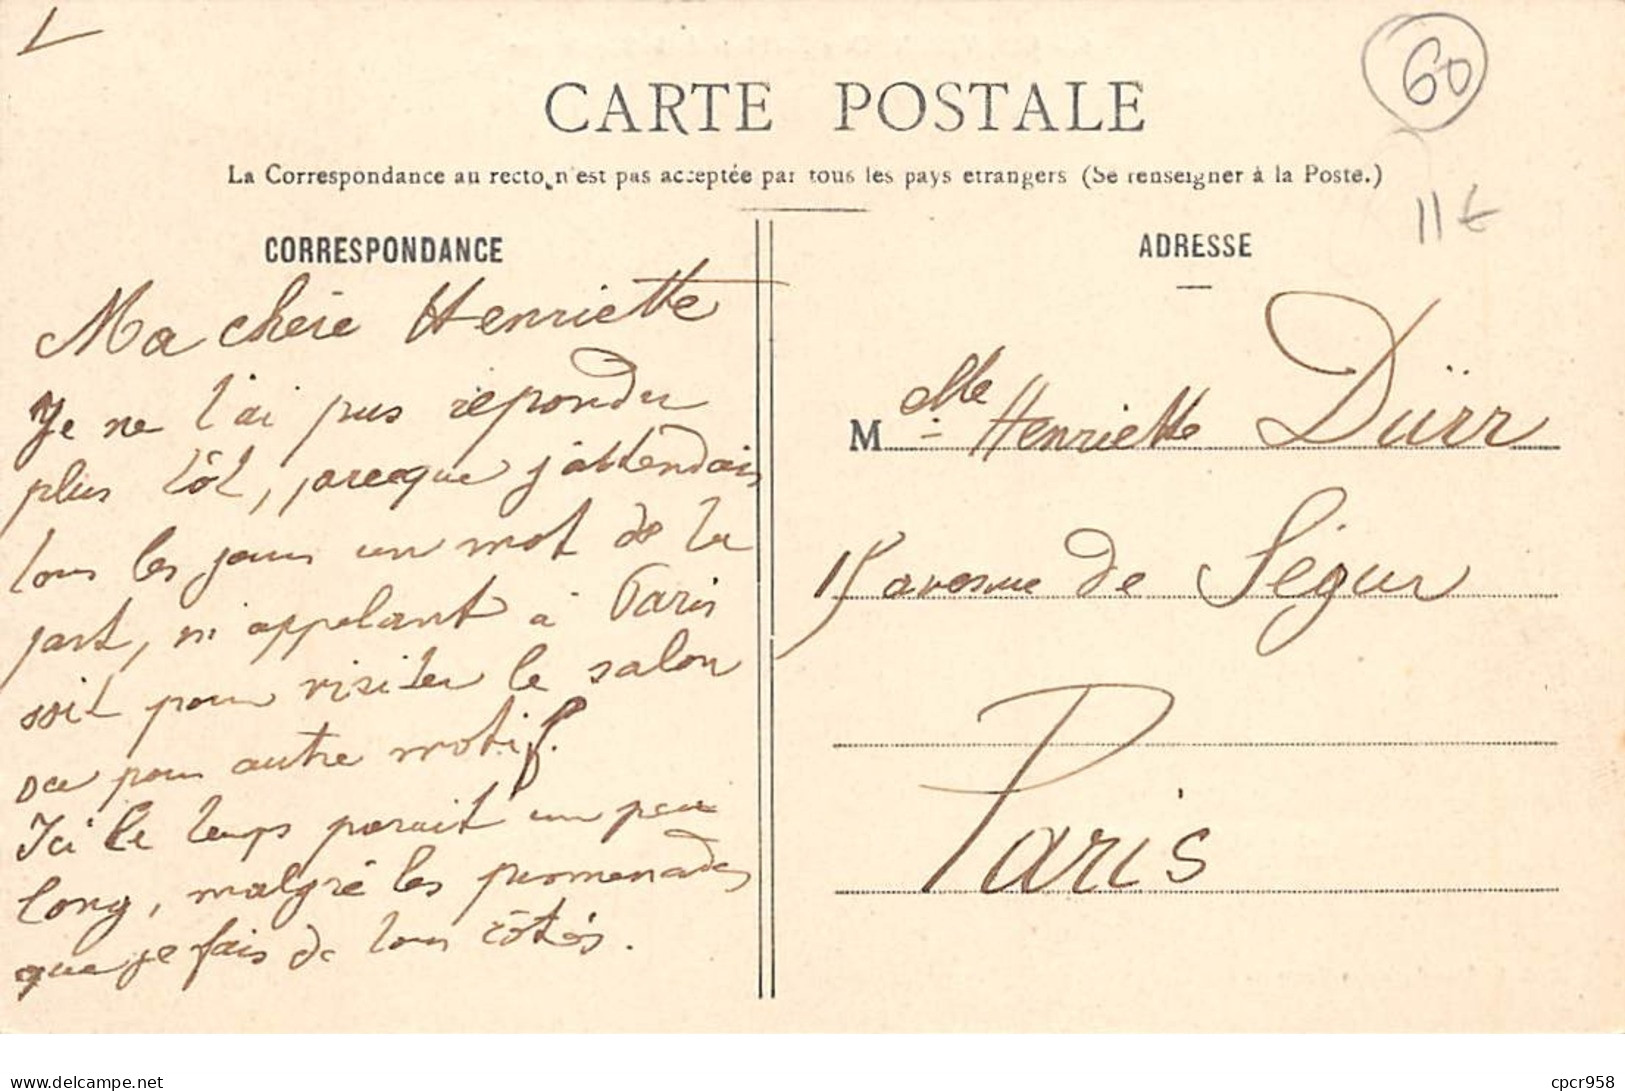 60
CARTE POSTALE
La Correspondance au recto n'est pas acceptée par tous les pays etrangers (Se renseigner à la Poste.)
11€
CORRESPONDANCE
Ma chère Henriette
Je ne t'ai pas répondu
plus tôt, parceque j'attendais
tous les jours un mot de ta
part, m'appelant à Paris
soit pour visiter le salon
ou pour autre motif.
Ici le temps parait un peu
long, malgré les promenades
que je fais de tous côtés.
ADRESSE
M elle Henriette Dürr
15 avenue de Ségur
Paris
delcampe.net
cpcr958